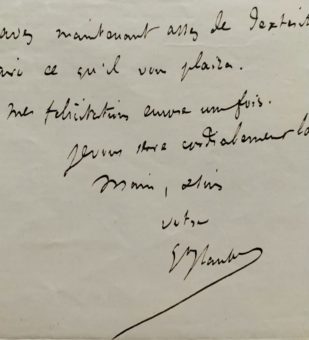 avez maintenant assez de dextérit
aire ce qu'il vous plaira.
Mes félicitations encore une fois.
je vous serre cordialement la
main, et suis
votre
Gve Flaubert